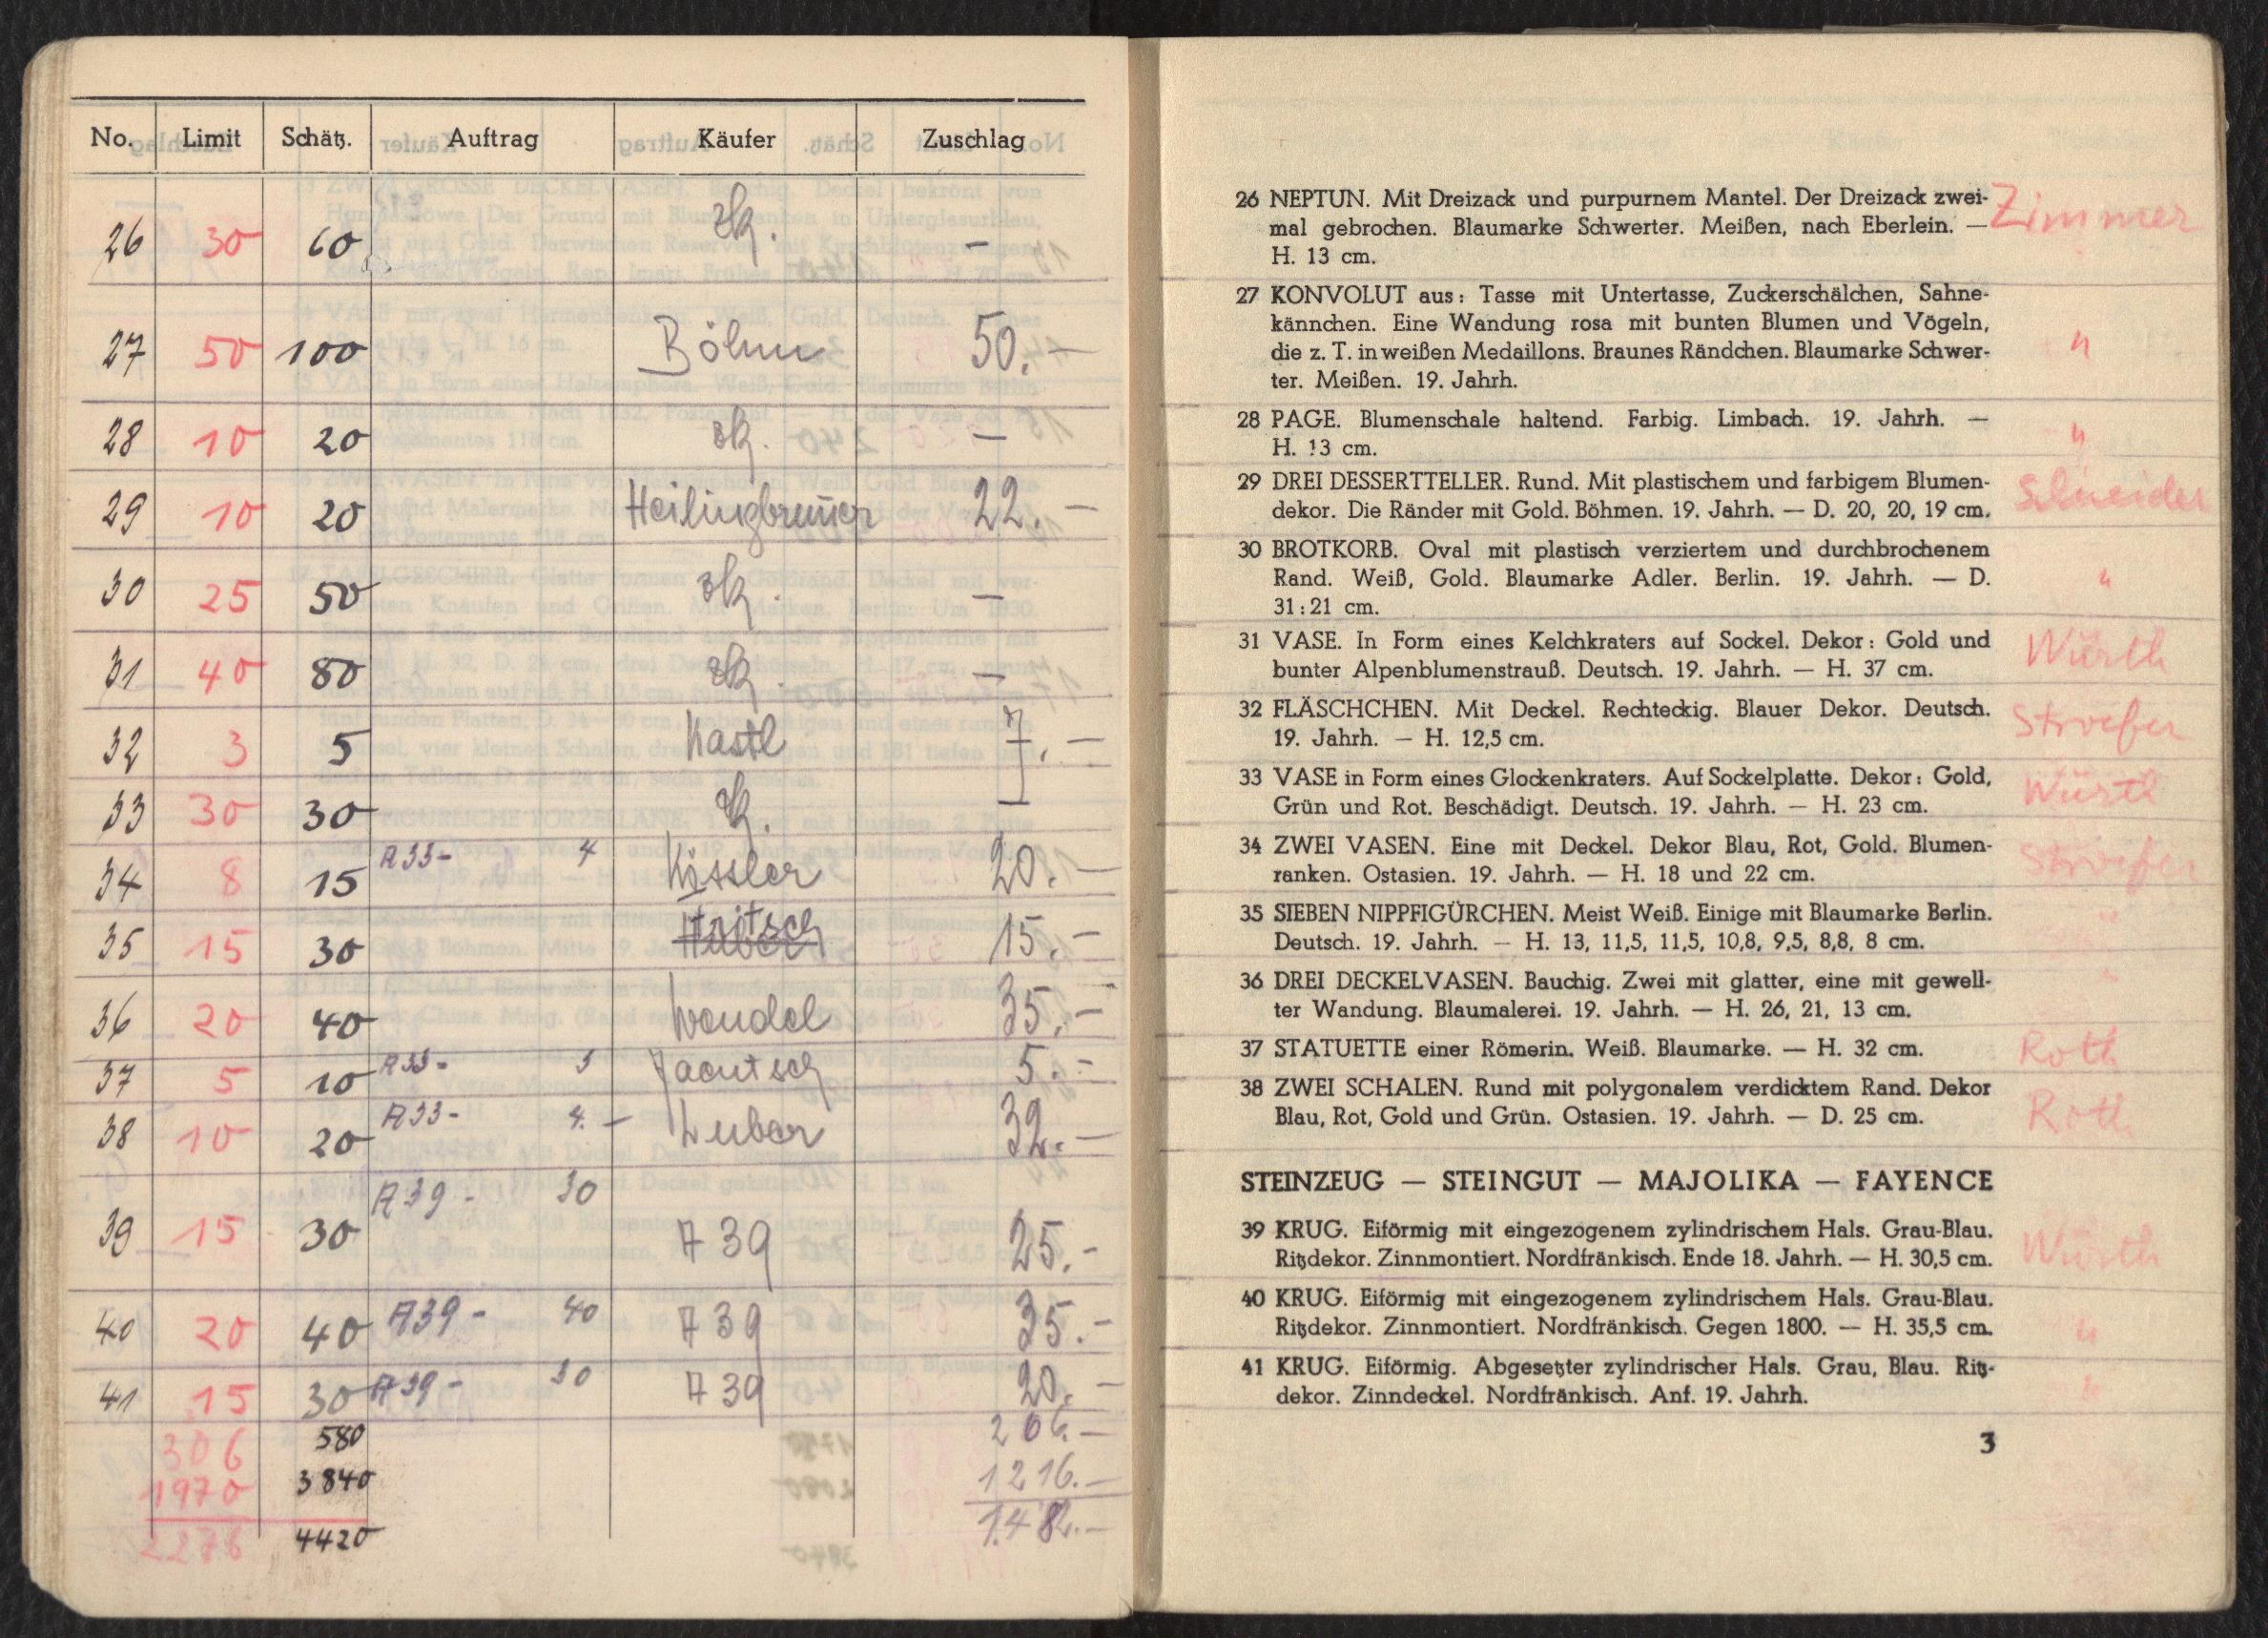 No. Limit Schätz. Auftrag Käufer Zuschlag
26 30 60 zk. —
27 50 100 Böhm 50.—
28 10 20 zk. —
29 10 20 Heilingbrunner 22.—
30 25 50 zk. —
31 40 80 zk. —
32 3 5 Kastl 7.—
33 30 30 zk. —
34 8 15 A 33- 4 Kissler 20.—
35 15 30 Huber Fritsch 15.—
36 20 40 Wendel 35.—
37 5 10 A 33- 3 Jaentsch 5.-
38 10 20 A 33- 4.- Huber 32.—
39 15 30 A 39- 30 A 39 25.-
40 20 40 A 39- 40 A 39 35.-
41 15 30 A 39- 30 A 39 20.—
306 580 266.—
1970 3840 1216.—
2276 4420 1.482.—
26 NEPTUN. Mit Dreizack und purpurnem Mantel. Der Dreizack zwei- Zimmer
mal gebrochen. Blaumarke Schwerter. Meißen, nach Eberlein. —
H. 13 cm.
27 KONVOLUT aus: Tasse mit Untertasse, Zuckerschälchen, Sahne-
kännchen. Eine Wandung rosa mit bunten Blumen und Vögeln,
die z. T. in weißen Medaillons. Braunes Rändchen. Blaumarke Schwer- "
ter. Meißen. 19. Jahrh.
28 PAGE. Blumenschale haltend. Farbig. Limbach. 19. Jahrh. —
H. 13 cm. "
29 DREI DESSERTTELLER. Rund. Mit plastischem und farbigem Blumen- Schneider
dekor. Die Ränder mit Gold. Böhmen. 19. Jahrh. — D. 20, 20, 19 cm.
30 BROTKORB. Oval mit plastisch verziertem und durchbrochenem
Rand. Weiß, Gold. Blaumarke Adler. Berlin. 19. Jahrh. — D. "
31:21 cm.
31 VASE. In Form eines Kelchkraters auf Sockel. Dekor: Gold und Würth
bunter Alpenblumenstrauß. Deutsch. 19. Jahrh. — H. 37 cm.
32 FLÄSCHCHEN. Mit Deckel. Rechteckig. Blauer Dekor. Deutsch. Stroefer
19. Jahrh. — H. 12,5 cm.
33 VASE in Form eines Glockenkraters. Auf Sockelplatte. Dekor: Gold, Würth
Grün und Rot. Beschädigt. Deutsch. 19. Jahrh. — H. 23 cm.
34 ZWEI VASEN. Eine mit Deckel. Dekor Blau, Rot, Gold. Blumen- Stroefer
ranken. Ostasien. 19. Jahrh. — H. 18 und 22 cm.
35 SIEBEN NIPPFIGÜRCHEN. Meist Weiß. Einige mit Blaumarke Berlin. "
Deutsch. 19. Jahrh. — H. 13, 11,5, 11,5, 10,8, 9,5, 8,8, 8 cm.
36 DREI DECKELVASEN. Bauchig. Zwei mit glatter, eine mit gewell- "
ter Wandung. Blaumalerei. 19. Jahrh. — H. 26, 21, 13 cm.
37 STATUETTE einer Römerin. Weiß. Blaumarke. — H. 32 cm. Roth
38 ZWEI SCHALEN. Rund mit polygonalem verdicktem Rand. Dekor
Blau, Rot, Gold und Grün. Ostasien. 19. Jahrh. — D. 25 cm. Roth
STEINZEUG — STEINGUT — MAJOLIKA — FAYENCE
39 KRUG. Eiförmig mit eingezogenem zylindrischem Hals. Grau-Blau. Würth
Ritzdekor. Zinnmontiert. Nordfränkisch. Ende 18. Jahrh. — H. 30,5 cm.
40 KRUG. Eiförmig mit eingezogenem zylindrischem Hals. Grau-Blau.
Ritzdekor. Zinnmontiert. Nordfränkisch. Gegen 1800. — H. 35,5 cm. "
41 KRUG. Eiförmig. Abgesetzter zylindrischer Hals. Grau, Blau. Ritz- "
dekor. Zinndeckel. Nordfränkisch. Anf. 19. Jahrh.
3